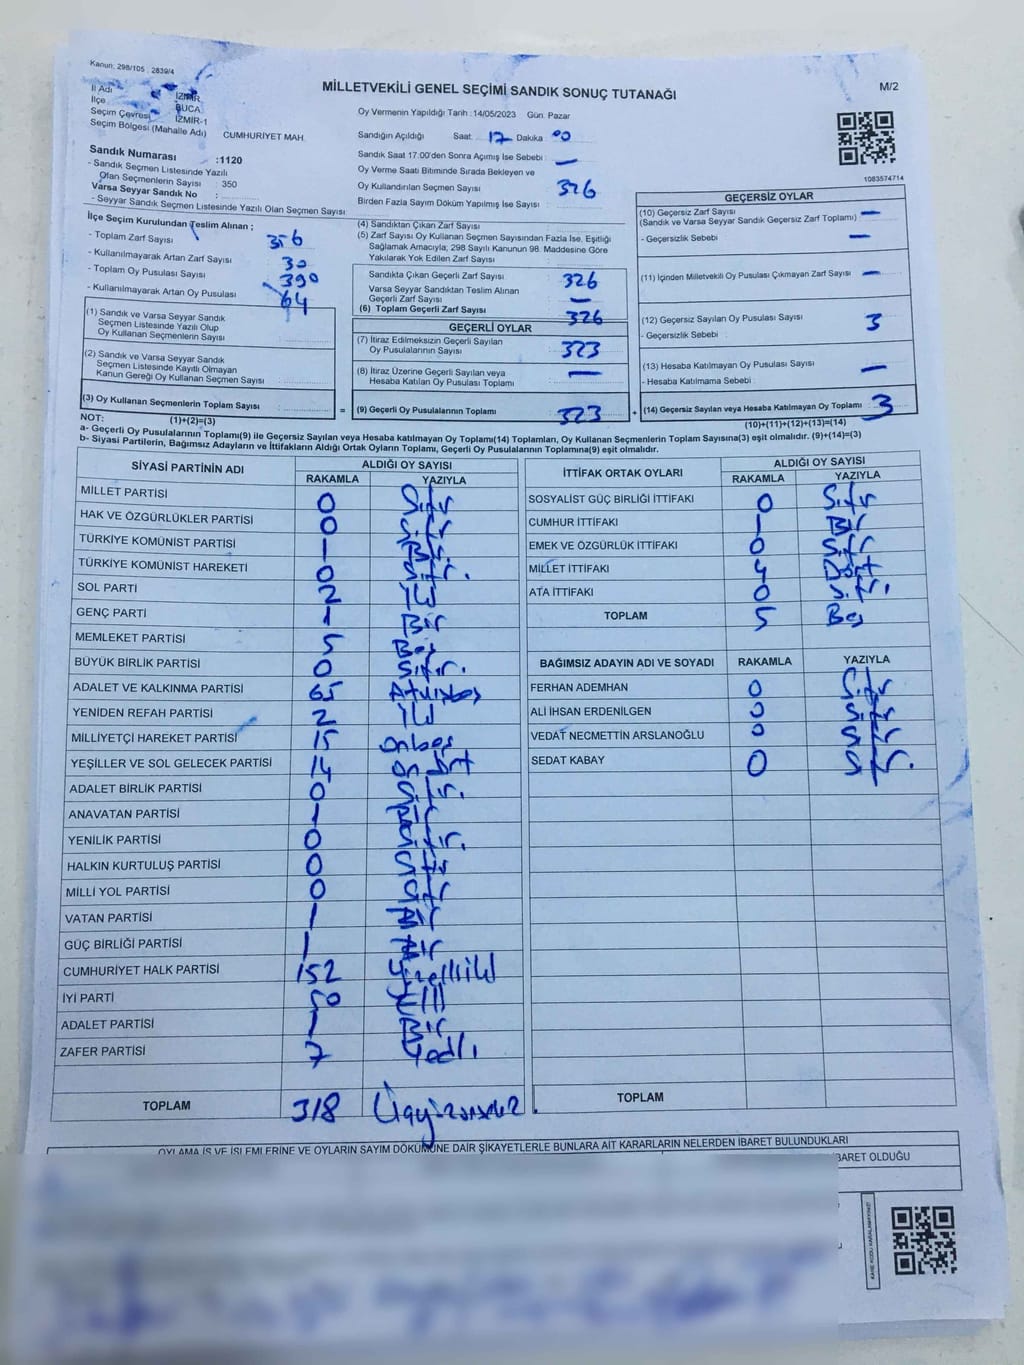 Kanun: 298/105 , 2839/4
MİLLETVEKİLİ GENEL SEÇİMİ SANDIK SONUÇ TUTANAĞI
M/2
İl Adı İZMİR
İlçe BUCA
Seçim Çevresi İZMİR-1
Seçim Bölgesi (Mahalle Adı) CUMHURİYET MAH.
Sandık Numarası :1120
- Sandık Seçmen Listesinde Yazılı
Olan Seçmenlerin Sayısı : 350
Varsa Seyyar Sandık No :
- Seyyar Sandık Seçmen Listesinde Yazılı Olan Seçmen Sayısı:
İlçe Seçim Kurulundan Teslim Alınan ;
- Toplam Zarf Sayısı 356
- Kullanılmayarak Artan Zarf Sayısı 30
- Toplam Oy Pusulası Sayısı 390
- Kullanılmayarak Artan Oy Pusulası 64
(1) Sandık ve Varsa Seyyar Sandık
Seçmen Listesinde Yazılı Olup
Oy Kullanan Seçmenlerin Sayısı
(2) Sandık ve Varsa Seyyar Sandık
Seçmen Listesinde Kayıtlı Olmayan
Kanun Gereği Oy Kullanan Seçmen Sayısı
(3) Oy Kullanan Seçmenlerin Toplam Sayısı
Oy Vermenin Yapıldığı Tarih : 14/05/2023 Gün. Pazar
Sandığın Açıldığı Saat: 17 Dakika : 00
Sandık Saat 17:00'den Sonra Açımış İse Sebebi : —
Oy Verme Saati Bitiminde Sırada Bekleyen ve
Oy Kullandırılan Seçmen Sayısı 326
Birden Fazla Sayım Döküm Yapılmış İse Sayısı :
(4) Sandıktan Çıkan Zarf Sayısı
(5) Zarf Sayısı Oy Kullanan Seçmen Sayısından Fazla İse, Eşitliği
Sağlamak Amacıyla; 298 Sayılı Kanunun 98. Maddesine Göre
Yakılarak Yok Edilen Zarf Sayısı
Sandıkta Çıkan Geçerli Zarf Sayısı 326
Varsa Seyyar Sandıktan Teslim Alınan
Geçerli Zarf Sayısı —
(6) Toplam Geçerli Zarf Sayısı 326
GEÇERLİ OYLAR
(7) İtiraz Edilmeksizin Geçerli Sayılan
Oy Pusulalarının Sayısı 323
(8) İtiraz Üzerine Geçerli Sayılan veya
Hesaba Katılan Oy Pusulası Toplamı —
= (9) Geçerli Oy Pusulalarının Toplamı 323
1083574714
GEÇERSİZ OYLAR
(10) Geçersiz Zarf Sayısı —
(Sandık ve Varsa Seyyar Sandık Geçersiz Zarf Toplamı)
- Geçersizlik Sebebi —
(11) İçinden Milletvekili Oy Pusulası Çıkmayan Zarf Sayısı —
(12) Geçersiz Sayılan Oy Pusulası Sayısı 3
- Geçersizlik Sebebi
(13) Hesaba Katılmayan Oy Pusulası Sayısı —
- Hesaba Katılmama Sebebi
+ (14) Geçersiz Sayılan veya Hesaba Katılmayan Oy Toplamı 3
NOT: (1)+(2)=(3) (10)+(11)+(12)+(13)=(14)
a- Geçerli Oy Pusulalarının Toplamı(9) ile Geçersiz Sayılan veya Hesaba Katılmayan Oy Toplamı(14) Toplamları, Oy Kullanan Seçmenlerin Toplam Sayısına(3) eşit olmalıdır. (9)+(14)=(3)
b- Siyasi Partilerin, Bağımsız Adayların ve İttifakların Aldığı Ortak Oyların Toplamı, Geçerli Oy Pusulalarının Toplamına(9) eşit olmalıdır.
SİYASİ PARTİNİN ADI ALDIĞI OY SAYISI
RAKAMLA YAZIYLA
MİLLET PARTİSİ 0 Sıfır
HAK VE ÖZGÜRLÜKLER PARTİSİ 0 Sıfır
TÜRKİYE KOMÜNİST PARTİSİ 1 Bir
TÜRKİYE KOMÜNİST HAREKETİ 0 Sıfır.
SOL PARTİ 2 İki
GENÇ PARTİ 1 Bir
MEMLEKET PARTİSİ 5 Beş
BÜYÜK BİRLİK PARTİSİ 0 Sıfır.
ADALET VE KALKINMA PARTİSİ 65 Atmışbeş
YENİDEN REFAH PARTİSİ 2 İki
MİLLİYETÇİ HAREKET PARTİSİ 15 Onbeş
YEŞİLLER VE SOL GELECEK PARTİSİ 14 Ondört
ADALET BİRLİK PARTİSİ 0 Sıfır.
ANAVATAN PARTİSİ 1 Bir
YENİLİK PARTİSİ 0 Sıfır.
HALKIN KURTULUŞ PARTİSİ 0 Sıfır
MİLLİ YOL PARTİSİ 0 Sıfır
VATAN PARTİSİ 1 Bir
GÜÇ BİRLİĞİ PARTİSİ 1 Bir
CUMHURİYET HALK PARTİSİ 152 Yüzelliiki
İYİ PARTİ 50 Elli
ADALET PARTİSİ 1 Bir
ZAFER PARTİSİ 7 Yedi
TOPLAM 318 Üçyüzonsekiz.
İTTİFAK ORTAK OYLARI ALDIĞI OY SAYISI
RAKAMLA YAZIYLA
SOSYALİST GÜÇ BİRLİĞİ İTTİFAKI 0 Sıfır
CUMHUR İTTİFAKI 1 Bir
EMEK VE ÖZGÜRLÜK İTTİFAKI 0 Sıfır
MİLLET İTTİFAKI 4 Dört
ATA İTTİFAKI 0 Sıfır.
TOPLAM 5 Beş
BAĞIMSIZ ADAYIN ADI VE SOYADI RAKAMLA YAZIYLA
FERHAN ADEMHAN 0 Sıfır
ALİ İHSAN ERDENİLGEN 0 Sıfır
VEDAT NECMETTİN ARSLANOĞLU 0 Sıfır
SEDAT KABAY 0 Sıfır.
TOPLAM
OYLAMA İŞ VE İŞLEMLERİNE VE OYLARIN SAYIM DÖKÜMÜNE DAİR ŞİKAYETLERLE BUNLARA AİT KARARLARIN NELERDEN İBARET BULUNDUKLARI
BARET OLDUĞU